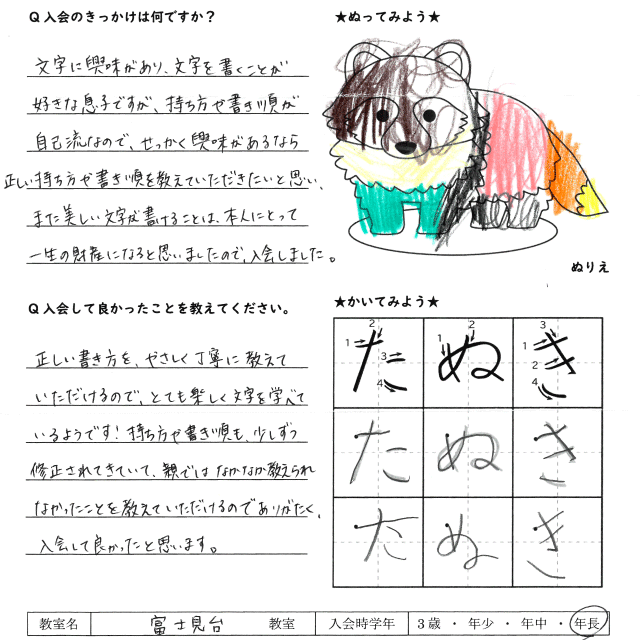 Q 入会のきっかけは何ですか？
文字に興味があり、文字を書くことが
好きな息子ですが、持ち方や書き順が
自己流なので、せっかく興味があるなら
正しい持ち方や書き順を教えていただきたいと思い、
また美しい文字が書けることは、本人にとって
一生の財産になると思いましたので、入会しました。
Q 入会して良かったことを教えてください。
正しい書き方を、やさしく丁寧に教えて
いただけるので、とても楽しく文字を学べて
いるようです！持ち方や書き順も、少しずつ
修正されてきていて、親ではなかなか教えられ
なかったことを教えていただけるのでありがたく、
入会して良かったと思います。
★ぬってみよう★
ぬりえ
★かいてみよう★
1 2 3 4 た 1 2 ぬ 1 2 3 4 き
た ぬ き
た ぬ き
教室名 富士見台 教室 入会時学年 3歳 ・ 年少 ・ 年中 ・ 年長